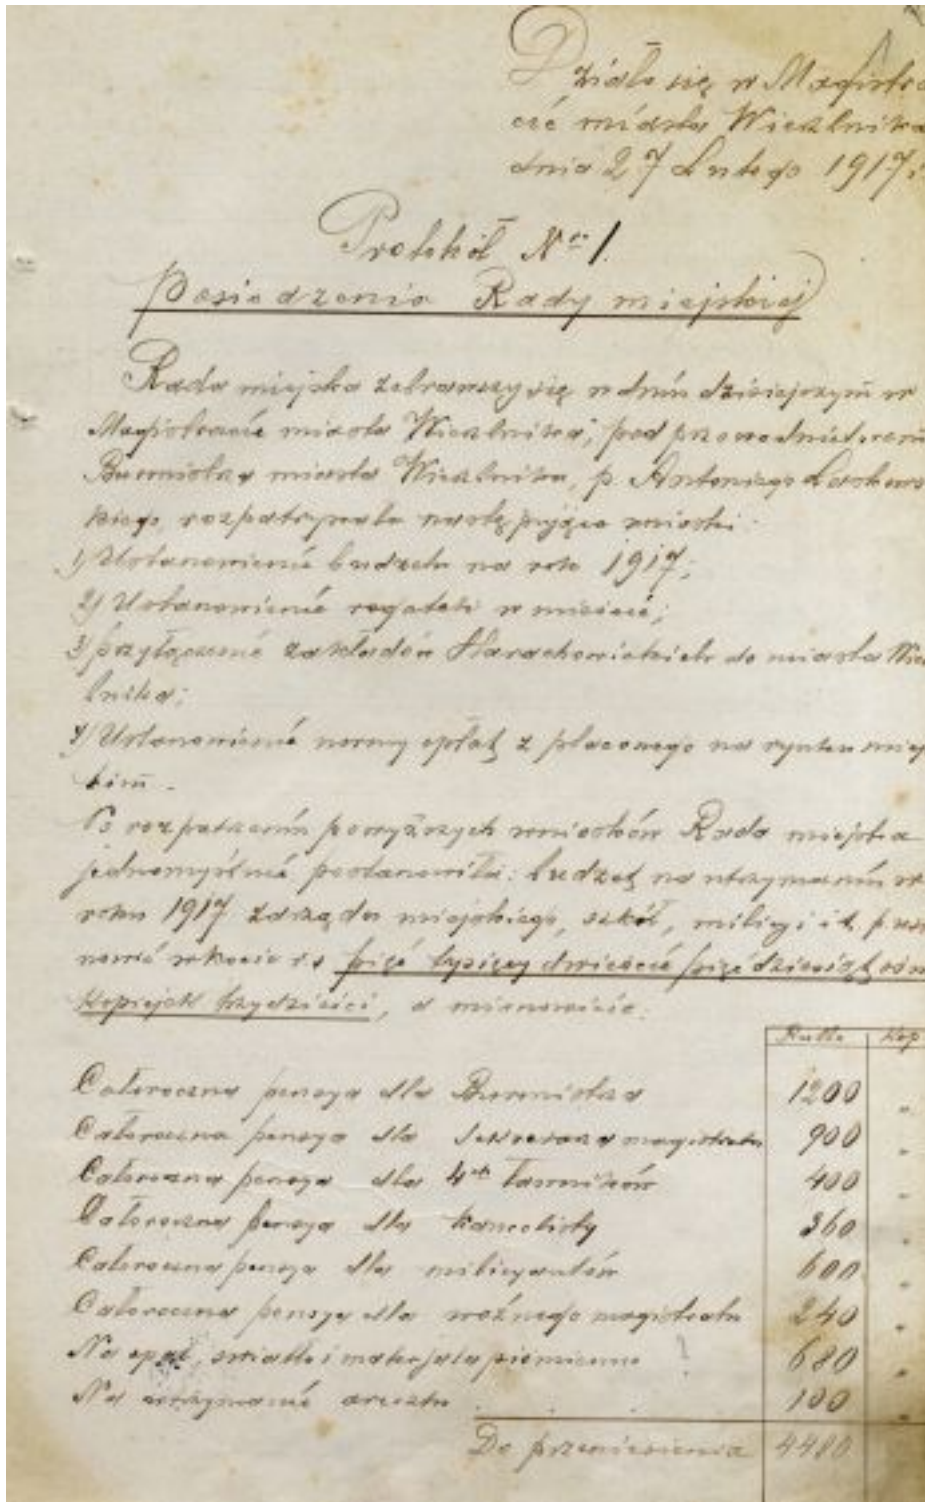 Działo się w Magistra
cie miasta Wierzbnika
dnia 27 Lutego 1917 r.
Protokół N° 1.
Posiedzenia Rady miejskiej
Rada miejska zebrawszy się w dniu dzisiejszym w
Magistracie miasta Wierzbnika, pod przewodnictwem
Burmistrza miasta Wierzbnika, p. Antoniego Laskows
kiego, rozpatrywała następujące wnioski:
1) Ustanowienie budżetu na rok 1917;
2) Ustanowienie rogatek w mieście;
3) przyłączenie zakładów Starachowickich do miasta Wierz
bnika;
4) Ustanowienie normy opłat z placowego na rynku miejs
kim.
Po rozpatrzeniu powyższych wniosków Rada miejska
jednomyślnie postanowiła: budżet na utrzymanie w
roku 1917 zarządu miejskiego, szkół, milicyi i t. p. usta
nowić w kwocie rs pięć tysięcy dwieście pięćdziesiąt ośm
kopiejek trzydzieści, a mianowicie:
Ruble Kop
Całoroczna pensya dla Burmistrza 1200 "
Całoroczna pensya dla Sekretarza magistratu 900 "
Całoroczna pensya dla 4ch ławników 400 "
Całoroczna pensya dla kancelisty 360 "
Całoroczna pensya dla milicyantów 600 "
Całoroczna pensya dla woźnego magistratu 240 "
Na opał, światło i materjały piśmienne 680 "
Na utrzymanie aresztu 100 "
Do przeniesienia 4480